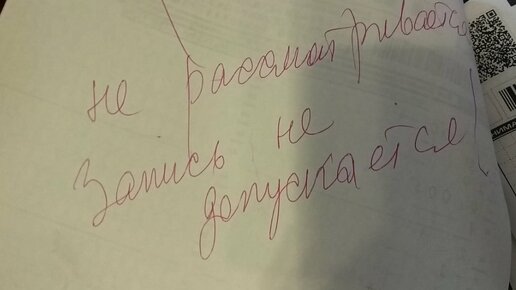 не рассматривается
Запись не
допускается!
НИМА